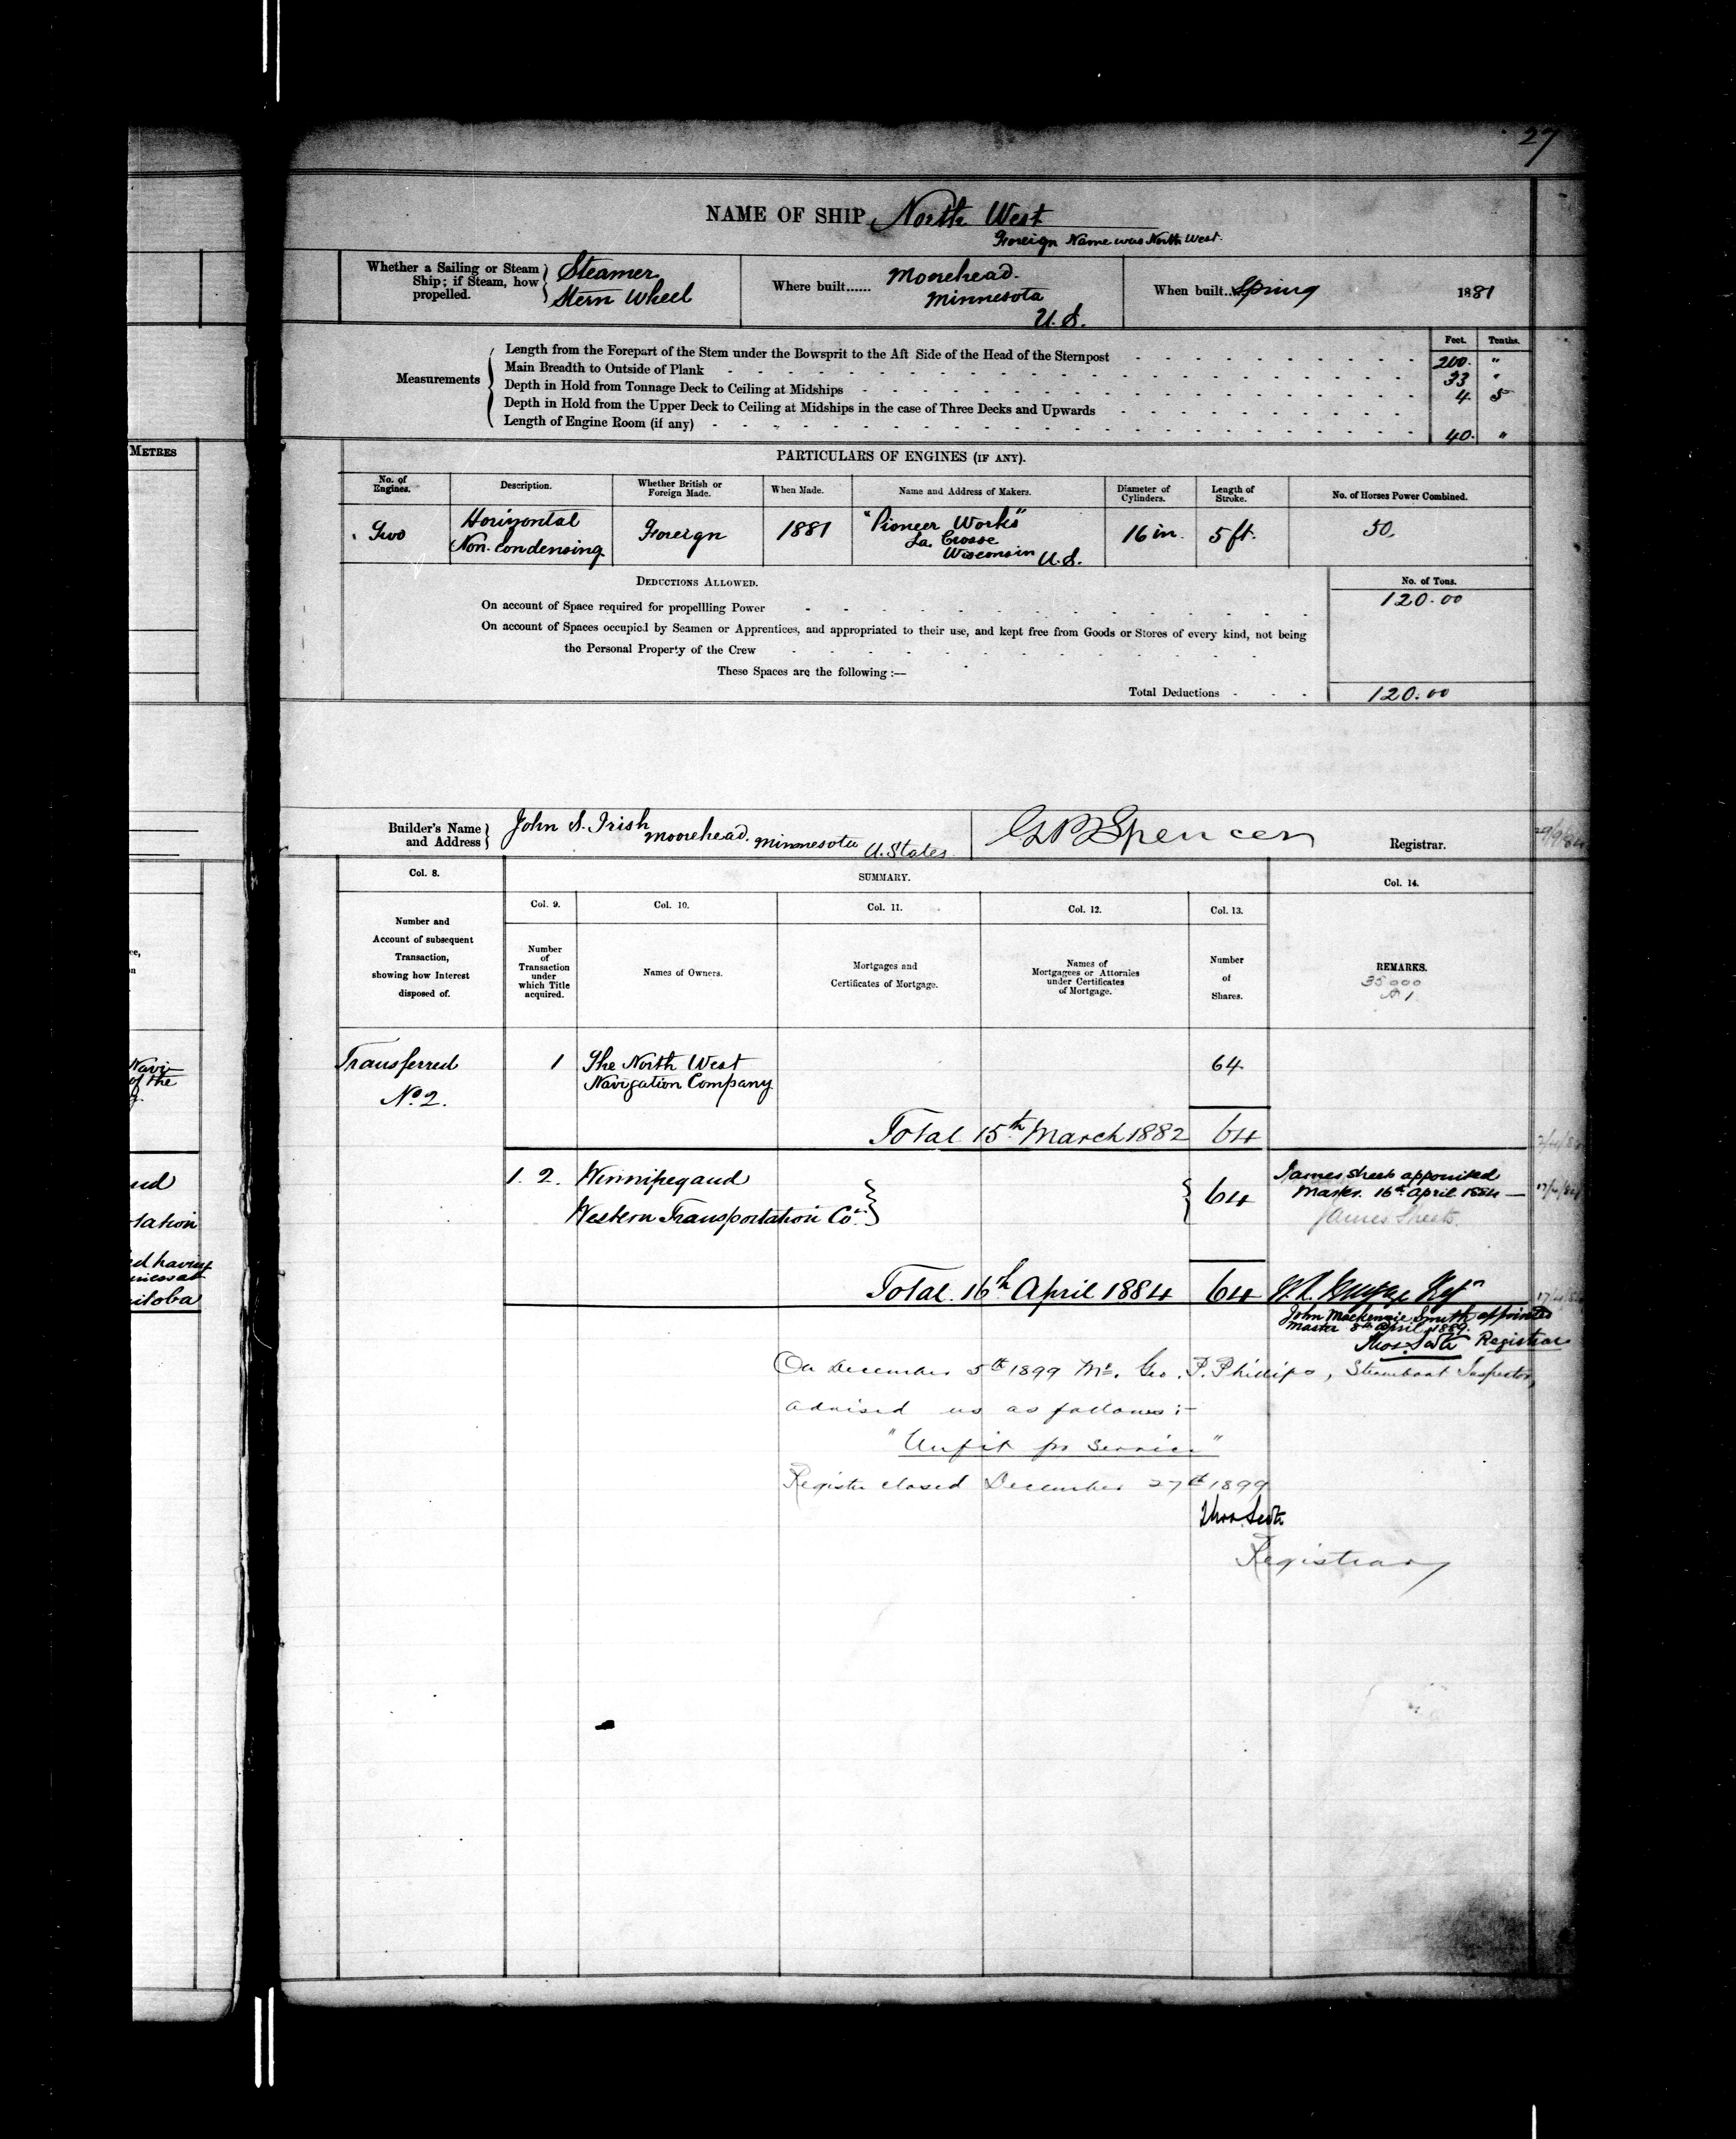 27
NAME OF SHIP North West
Foreign Name was North West.
Whether a Sailing or Steam Ship; if Steam, how propelled. Steamer Stern Wheel
Where built...... Moorhead. Minnesota U.S.
When built.. Spring 1881
Feet. Tenths.
Measurements
Length from the Forepart of the Stem under the Bowsprit to the Aft Side of the Head of the Sternpost 200. "
Main Breadth to Outside of Plank 33 "
Depth in Hold from Tonnage Deck to Ceiling at Midships 4. 5
Depth in Hold from the Upper Deck to Ceiling at Midships in the case of Three Decks and Upwards
Length of Engine Room (if any) 40. "
METRES
PARTICULARS OF ENGINES (IF ANY).
No. of Engines. Description. Whether British or Foreign Made. When Made. Name and Address of Makers. Diameter of Cylinders. Length of Stroke. No. of Horses Power Combined.
Two Horizontal Non. Condensing Foreign 1881 "Pioneer Works" La Crosse Wisconsin U.S. 16 in. 5 ft. 50.
DEDUCTIONS ALLOWED.
No. of Tons.
On account of Space required for propellling Power 120.00
On account of Spaces occupied by Seamen or Apprentices, and appropriated to their use, and kept free from Goods or Stores of every kind, not being
the Personal Property of the Crew
These Spaces are the following :—
Total Deductions 120.00
Builder's Name and Address John S. Irish Moorehead. Minnesota U. States.
G B Spencer Registrar.
Col. 8. SUMMARY. Col. 14.
Col. 9. Col. 10. Col. 11. Col. 12. Col. 13.
Number and Account of subsequent Transaction, showing how Interest disposed of.
Number of Transaction under which Title acquired.
Names of Owners.
Mortgages and Certificates of Mortgage.
Names of Mortgagees or Attornies under Certificates of Mortgage.
Number of Shares.
REMARKS.
35000
A 1
Transferred No. 2.
1 The North West Navigation Company 64
Total 15th March 1882 64
1. 2. Winnipeg and
Western Transportation Co. 64
James Sheets appointed
Master. 16th April 1884 —
James Sheets.
Total. 16th April 1884 64
John Mackenzie Smith appointed
Master 8th April 1889.
Thos. Scott Registrar
On December 5th 1899 Mr. Geo. P. Phillips, Steamboat Inspector,
advised us as follows :-
"Unfit for Service"
Register closed December 27th 1899
Thos. Scott
Registrar